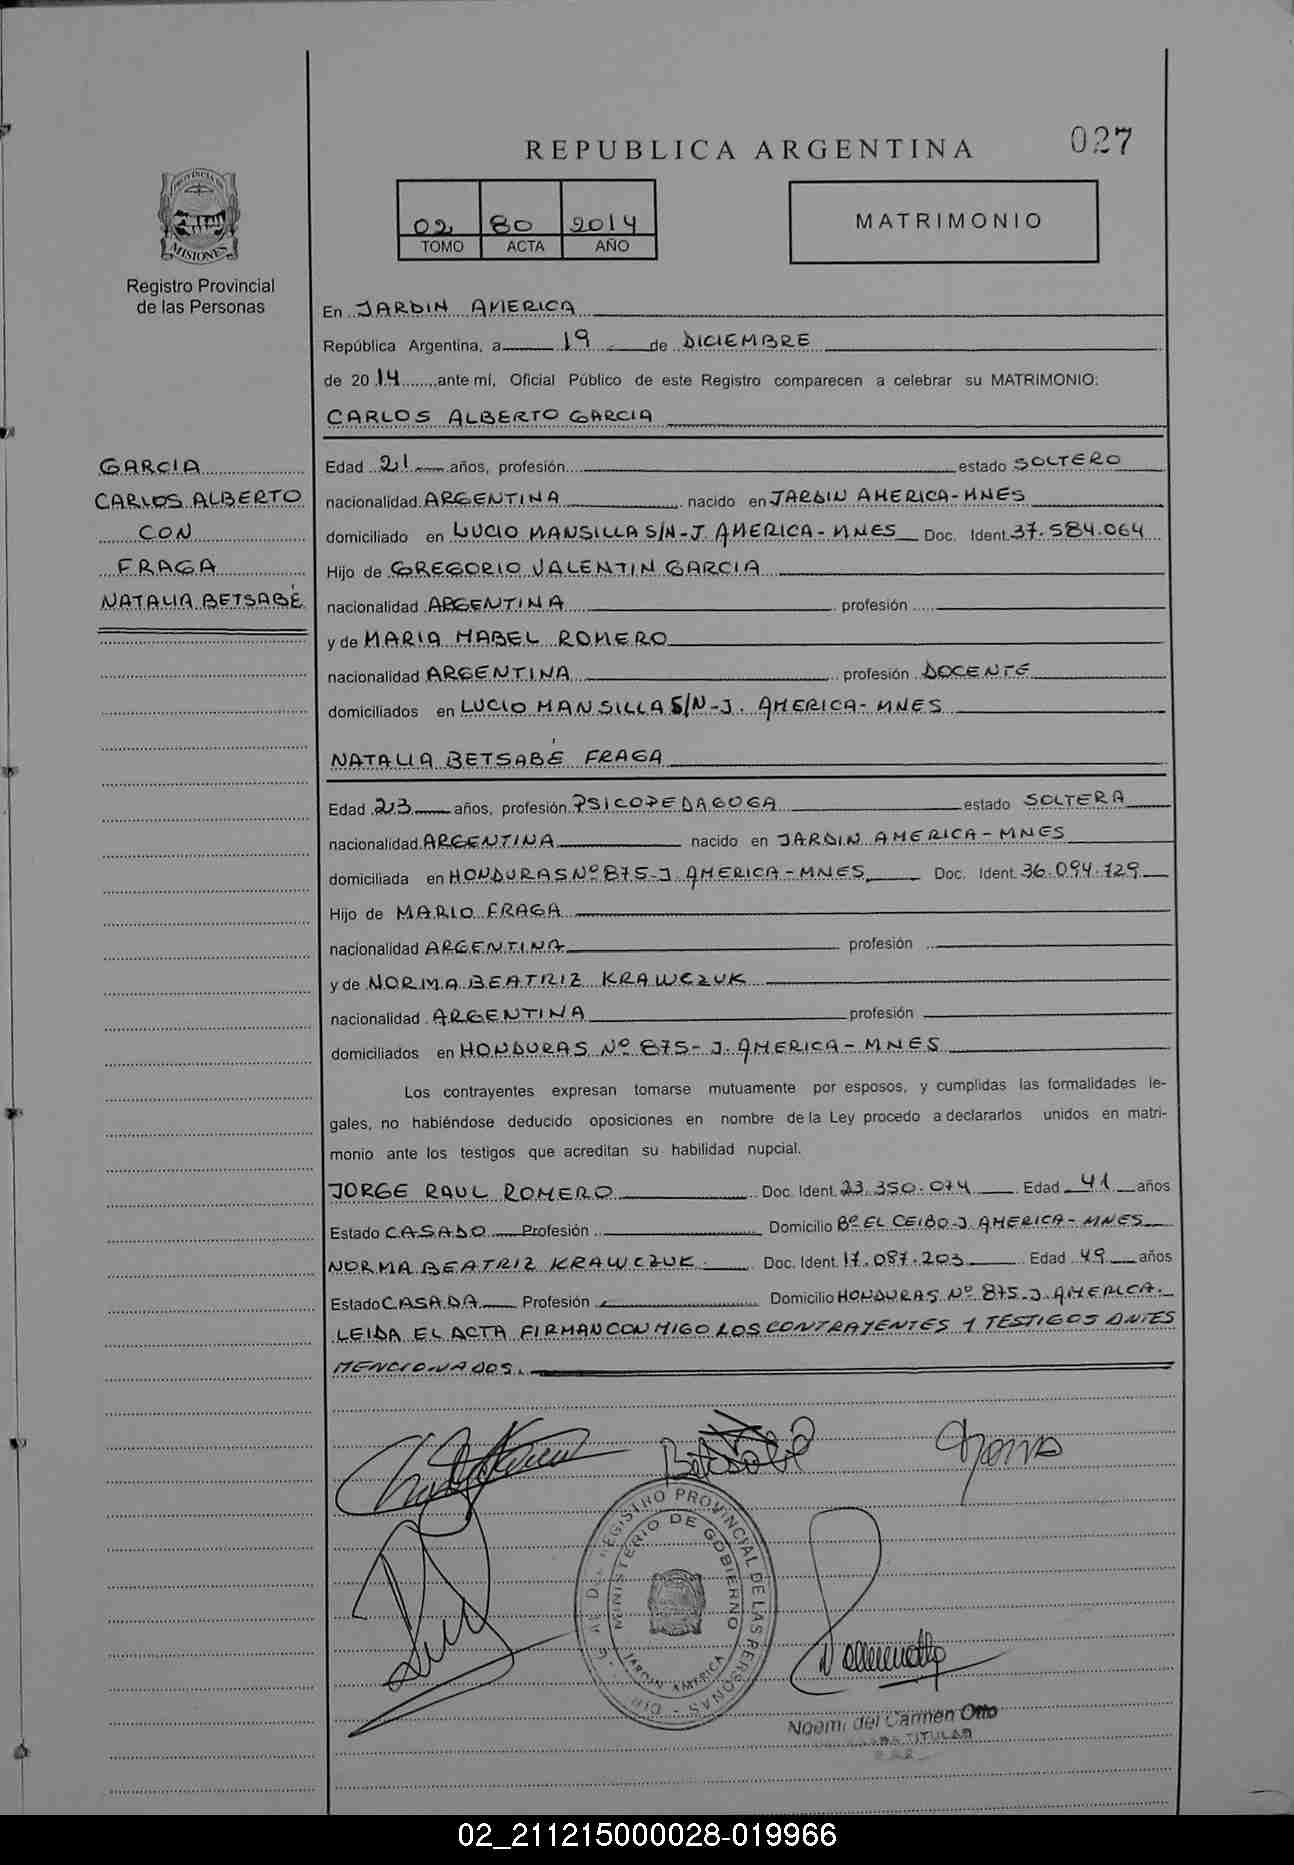 REPUBLICA ARGENTINA
027
02 80 2014
TOMO ACTA AÑO
MATRIMONIO
PROVINCIA DE
MISIONES
Registro Provincial
de las Personas
En JARDIN AMERICA
República Argentina, a 19 de DICIEMBRE
de 2014 ante mí, Oficial Público de este Registro comparecen a celebrar su MATRIMONIO:
CARLOS ALBERTO GARCIA
GARCIA
CARLOS ALBERTO
CON
FRAGA
NATALIA BETSABÉ
Edad 21 años, profesión estado SOLTERO
nacionalidad ARGENTINA nacido en JARDIN AMERICA-MNES
domiciliado en LUCIO MANSILLA S/N-J. AMERICA-MNES Doc. Ident. 37.584.064
Hijo de GREGORIO VALENTIN GARCIA
nacionalidad ARGENTINA profesión
y de MARIA MABEL ROMERO
nacionalidad ARGENTINA profesión DOCENTE
domiciliados en LUCIO MANSILLA S/N-J. AMERICA-MNES
NATALIA BETSABÉ FRAGA
Edad 23 años, profesión PSICOPEDAGOGA estado SOLTERA
nacionalidad ARGENTINA nacido en JARDIN AMERICA-MNES
domiciliada en HONDURAS Nº 875-J. AMERICA-MNES Doc. Ident. 36.094.729
Hijo de MARIO FRAGA
nacionalidad ARGENTINA profesión
y de NORMA BEATRIZ KRAWCZUK
nacionalidad ARGENTINA profesión
domiciliados en HONDURAS Nº 875-J. AMERICA-MNES
Los contrayentes expresan tomarse mutuamente por esposos, y cumplidas las formalidades le-
gales, no habiéndose deducido oposiciones en nombre de la Ley procedo a declararlos unidos en matri-
monio ante los testigos que acreditan su habilidad nupcial.
JORGE RAUL ROMERO Doc. Ident. 23.350.074 Edad 41 años
Estado CASADO Profesión Domicilio Bº EL CEIBO-J. AMERICA-MNES
NORMA BEATRIZ KRAWCZUK Doc. Ident. 17.087.203 Edad 49 años
Estado CASADA Profesión Domicilio HONDURAS Nº 875-J. AMERICA.
LEIDA EL ACTA FIRMAN CONMIGO LOS CONTRAYENTES Y TESTIGOS ANTES
MENCIONADOS.
REGISTRO PROVINCIAL DE LAS PERSONAS
MINISTERIO DE GOBIERNO
JARDIN AMERICA
Noemi del Carmen Otto
TITULAR
02_211215000028-019966